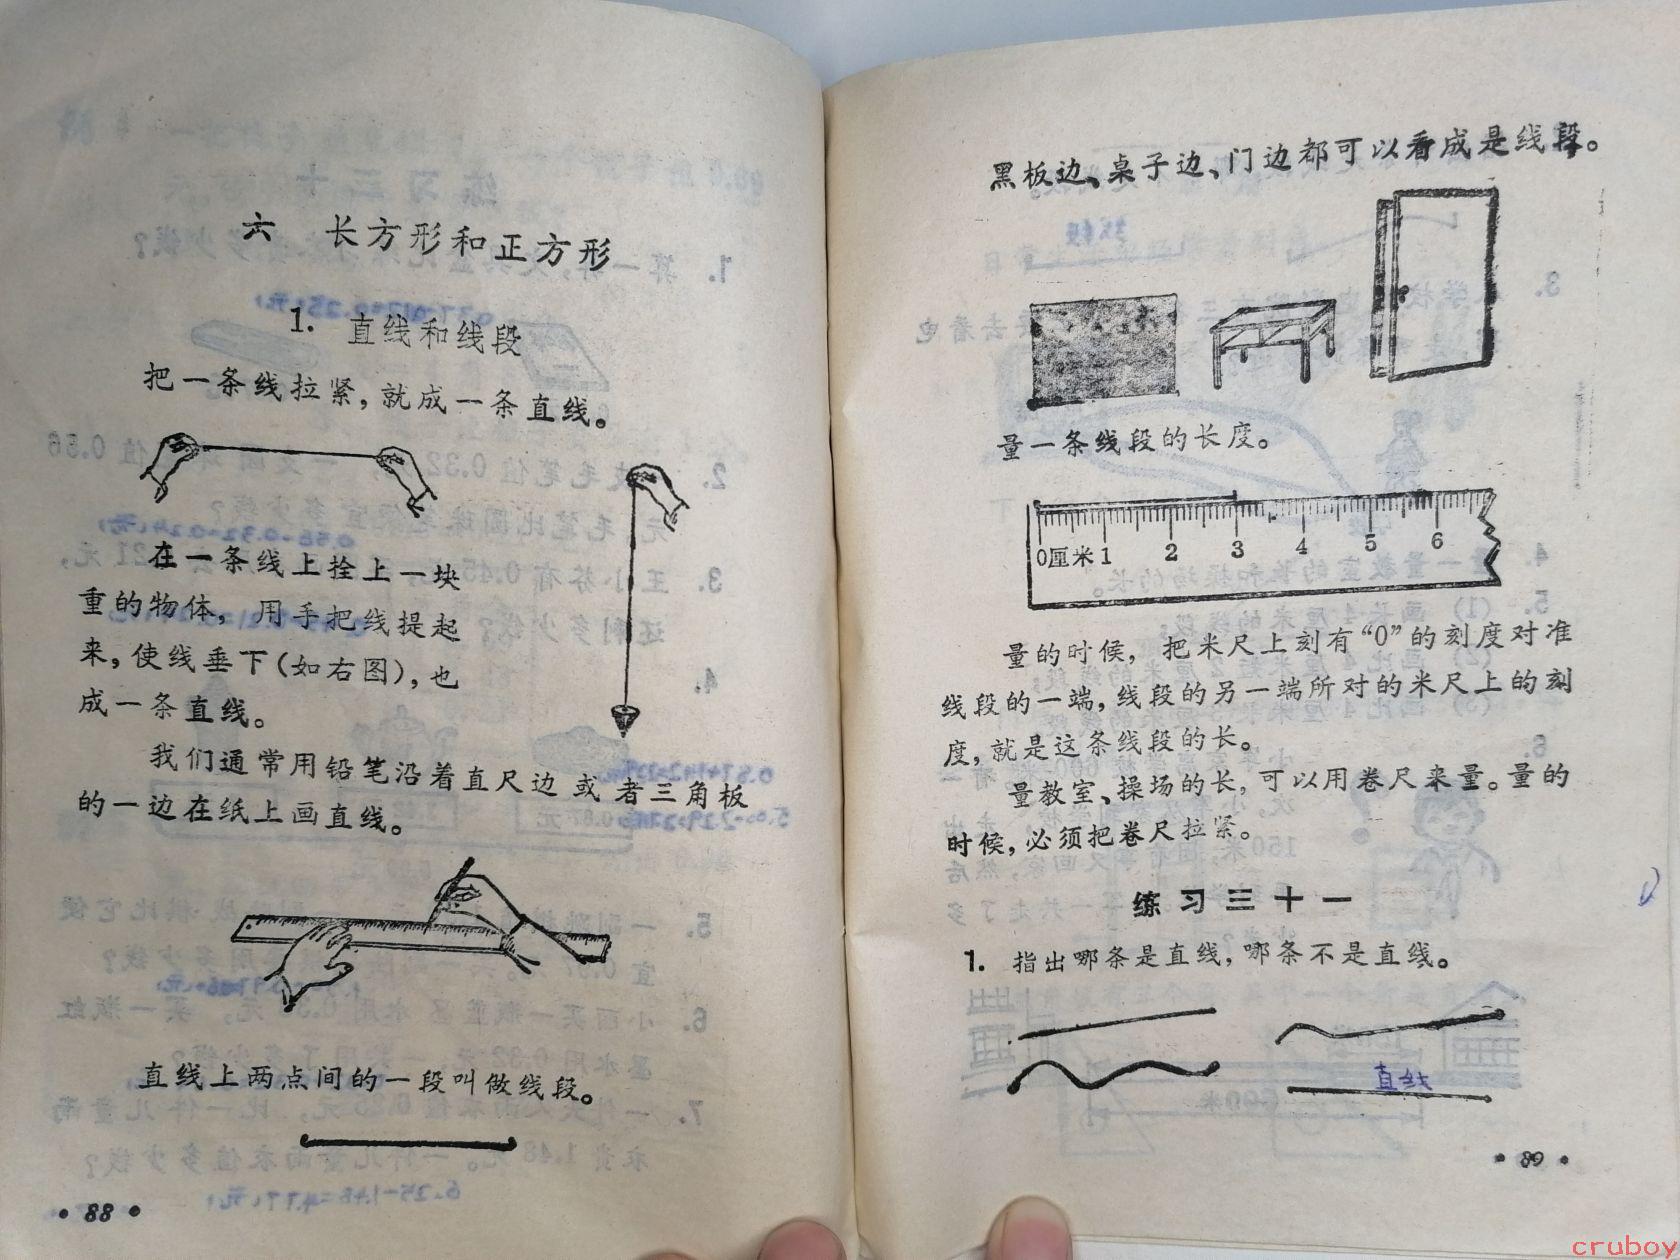 六 长方形和正方形
1. 直线和线段
把一条线拉紧，就成一条直线。
在一条线上拴上一块
重的物体，用手把线提起
来，使线垂下（如右图），也
成一条直线。
我们通常用铅笔沿着直尺边或者三角板
的一边在纸上画直线。
直线上两点间的一段叫做线段。
• 88 •
黑板边、桌子边、门边都可以看成是线段。
量一条线段的长度。
0厘米 1 2 3 4 5 6
量的时候，把米尺上刻有“0”的刻度对准
线段的一端，线段的另一端所对的米尺上的刻
度，就是这条线段的长。
量教室、操场的长，可以用卷尺来量。量的
时候，必须把卷尺拉紧。
练习三十一
1. 指出哪条是直线，哪条不是直线。
直线
• 89 •
cruboy